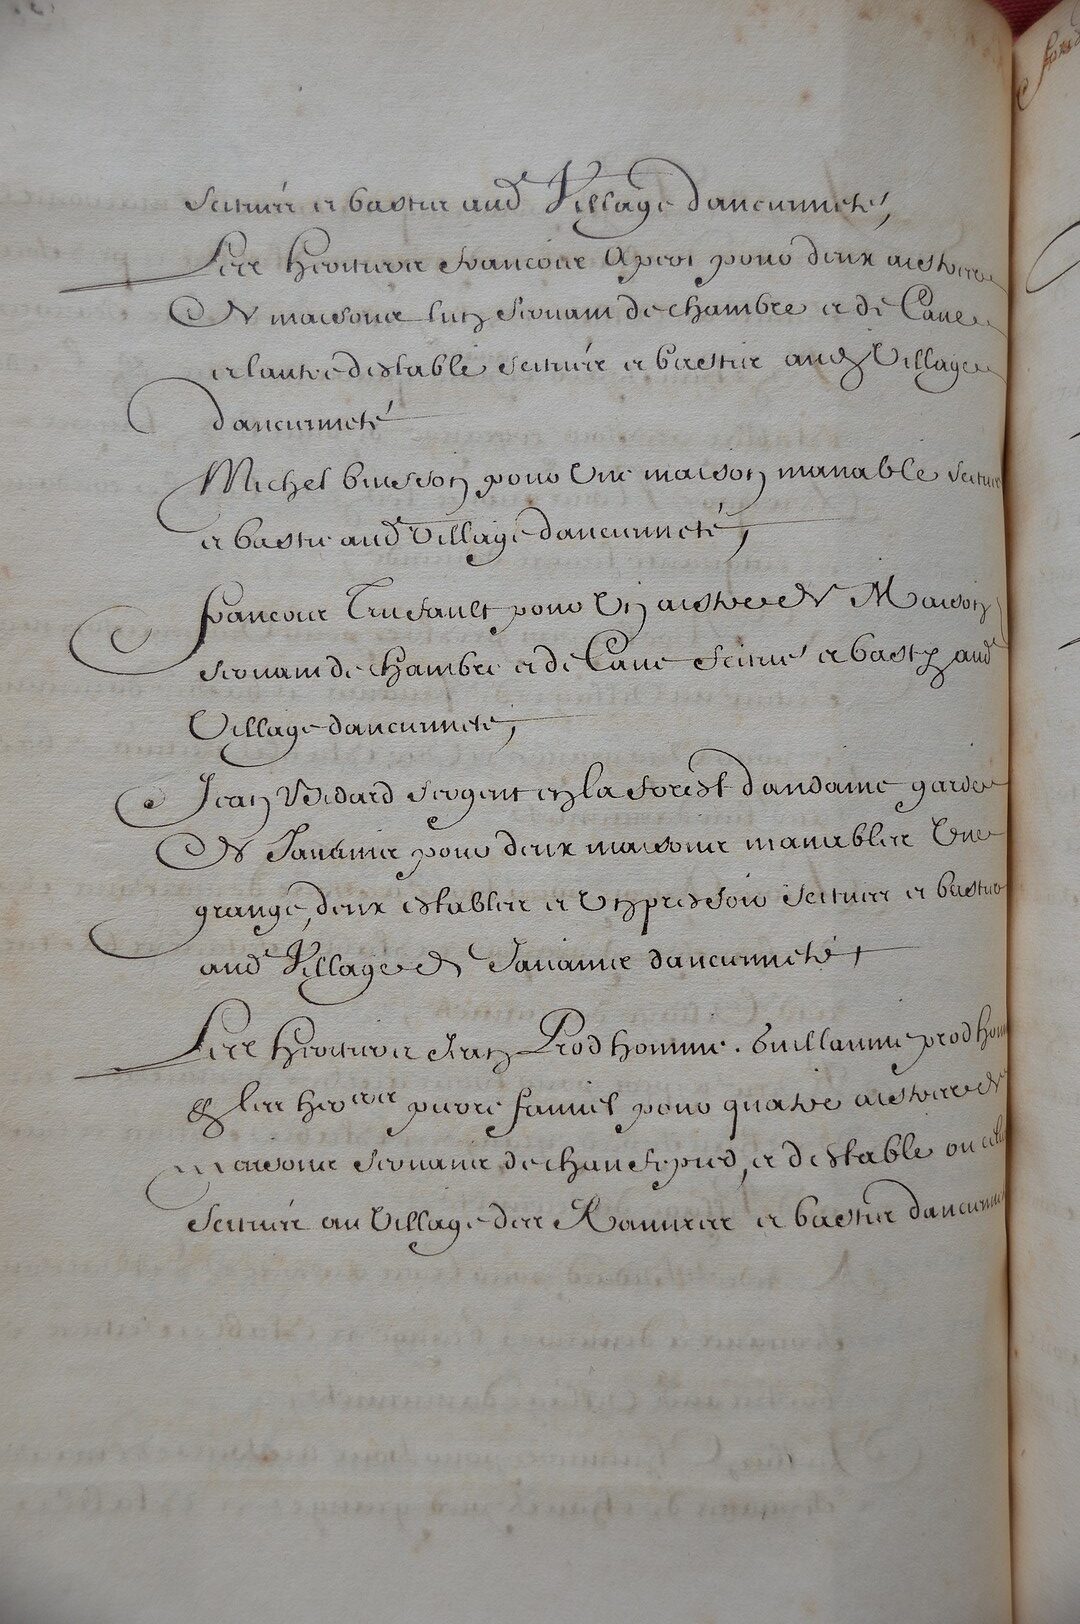 scituée et bastie aud Village dancienneté,
Les heritiers francois Apert pour deux aistres
de maisons lun servant de chambre et de Cave
et lautre destable scituée et bastie aud Village
dancienneté
Michel buisson pour Une maison manable scituée
et bastie aud Village dancienneté,
francois Trufault pour Un aistre de Maison
servant de chambre et de Cave scitué et basty aud
Village dancienneté,
Jean Bidard sergent en la forest dandaine garde
de pour deux maisons manables Une
grange, deux estables et Un pressoir scituées et bastis
aud Village de dancienneté
Les heritiers Jean Prodhomme. Guillaume prodhomme
& les hers pierre pour quatre aistres de
Maisons servants de chaufepied, et destable ou
scituée au Village des et bastis dancienneté